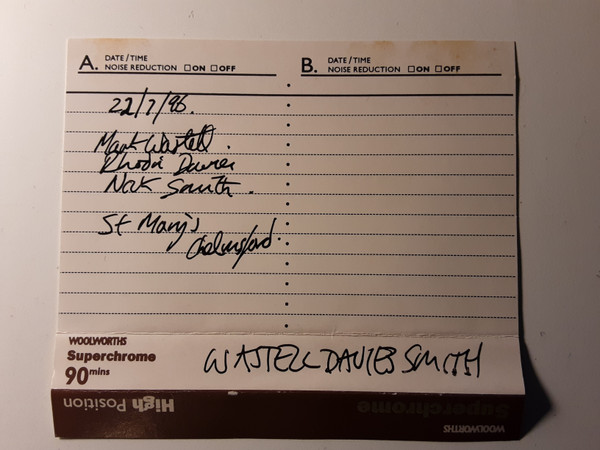 A. DATE/TIME
NOISE REDUCTION ☐ON ☐OFF
B. DATE/TIME
NOISE REDUCTION ☐ON ☐OFF
22/7/96.
Mark Wastell.
Rhodri Davies
Nick Smith.
St Mary's
Chelmsford.
WOOLWORTHS
Superchrome
90mins
WASTELL DAVIES SMITH
High Position
Superchrome
WOOLWORTHS